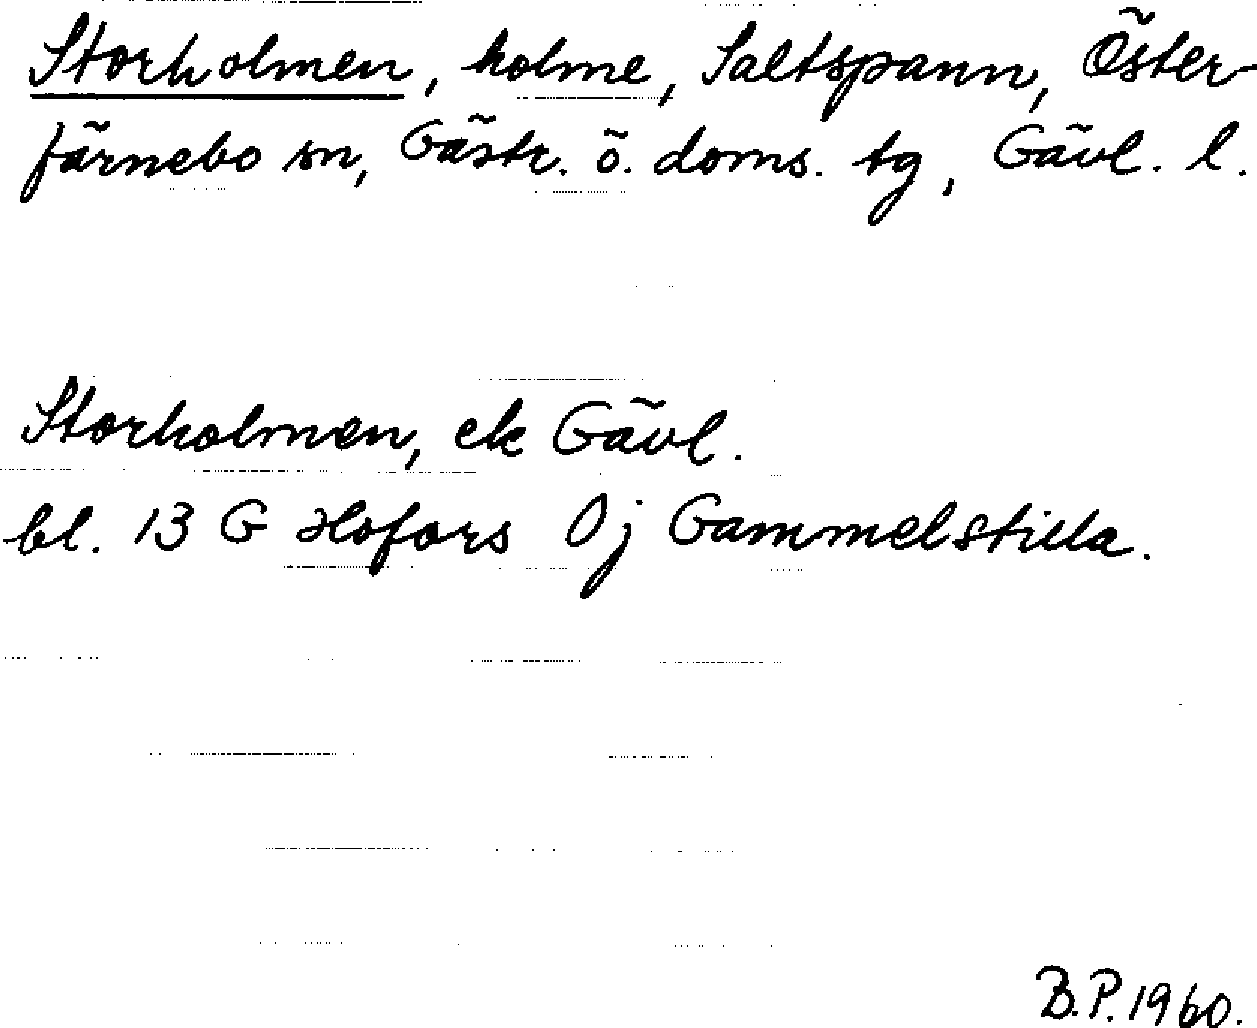 Storholmen, holme, Saltspann, Öster-
färnebo sn, Gästr. ö. doms. tg, Gävl. l.
Storholmen, ek Gävl.
bl. 13 G Hofors 0j Gammelstilla.
B.P. 1960.